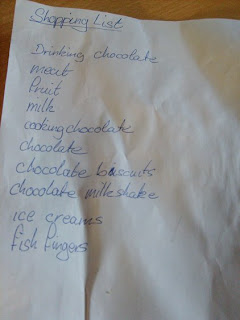 Shopping List
Drinking chocolate
meat
fruit
milk
cooking chocolate
chocolate
chocolate biscuits
chocolate milkshake
ice creams
fish fingers